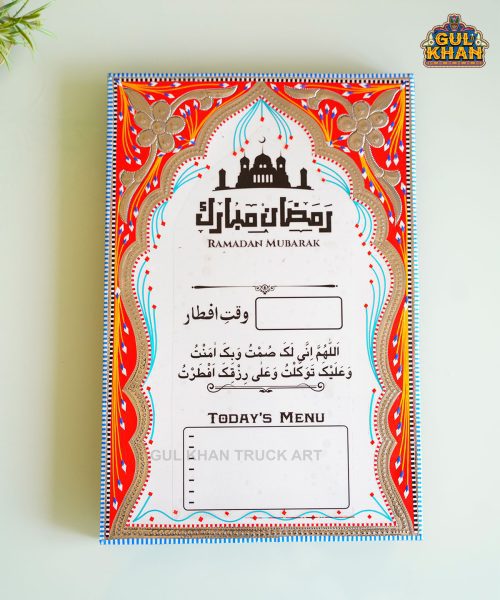 GUL
KHAN
رمضان مبارك
RAMADAN MUBARAK
وقتِ افطار
اَللّٰهُمَّ اِنِّی لَکَ صُمْتُ وَبِکَ اٰمَنْتُ
وَعَلَيْکَ تَوَکَّلْتُ وَعَلٰی رِزْقِکَ اَفْطَرْتُ
TODAY'S MENU
GUL KHAN TRUCK ART